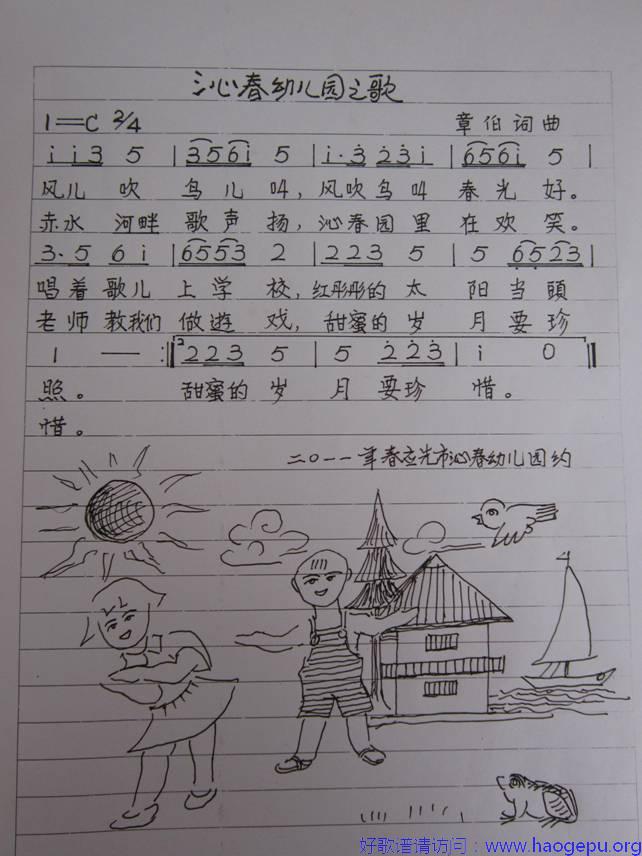 沁春幼儿园之歌
1=C 2/4 章伯词曲
i i 3 5 | 3 5 6 i 5 | i· 3 2 3 i | 6 5 6 i 5 |
风儿 吹 鸟 儿 叫，风吹鸟叫 春光 好。
赤水 河畔 歌声 扬，沁春园里 在欢 笑。
3· 5 6 i | 6 5 5 3 2 | 2 2 3 5 | 5 6 5 2 3 |
唱着 歌儿 上学 校，红彤彤的 太 阳当頭
老师教我们 做遊 戏，甜蜜的 岁 月要珍
1 — :‖ 2 2 2 3 5 | 5 2 2 3 | i 0 ‖
照。 甜蜜的 岁 月 要珍 惜。
惜。
二〇一一年春应光市沁春幼儿园约
好歌谱请访问：www.haogepu.org